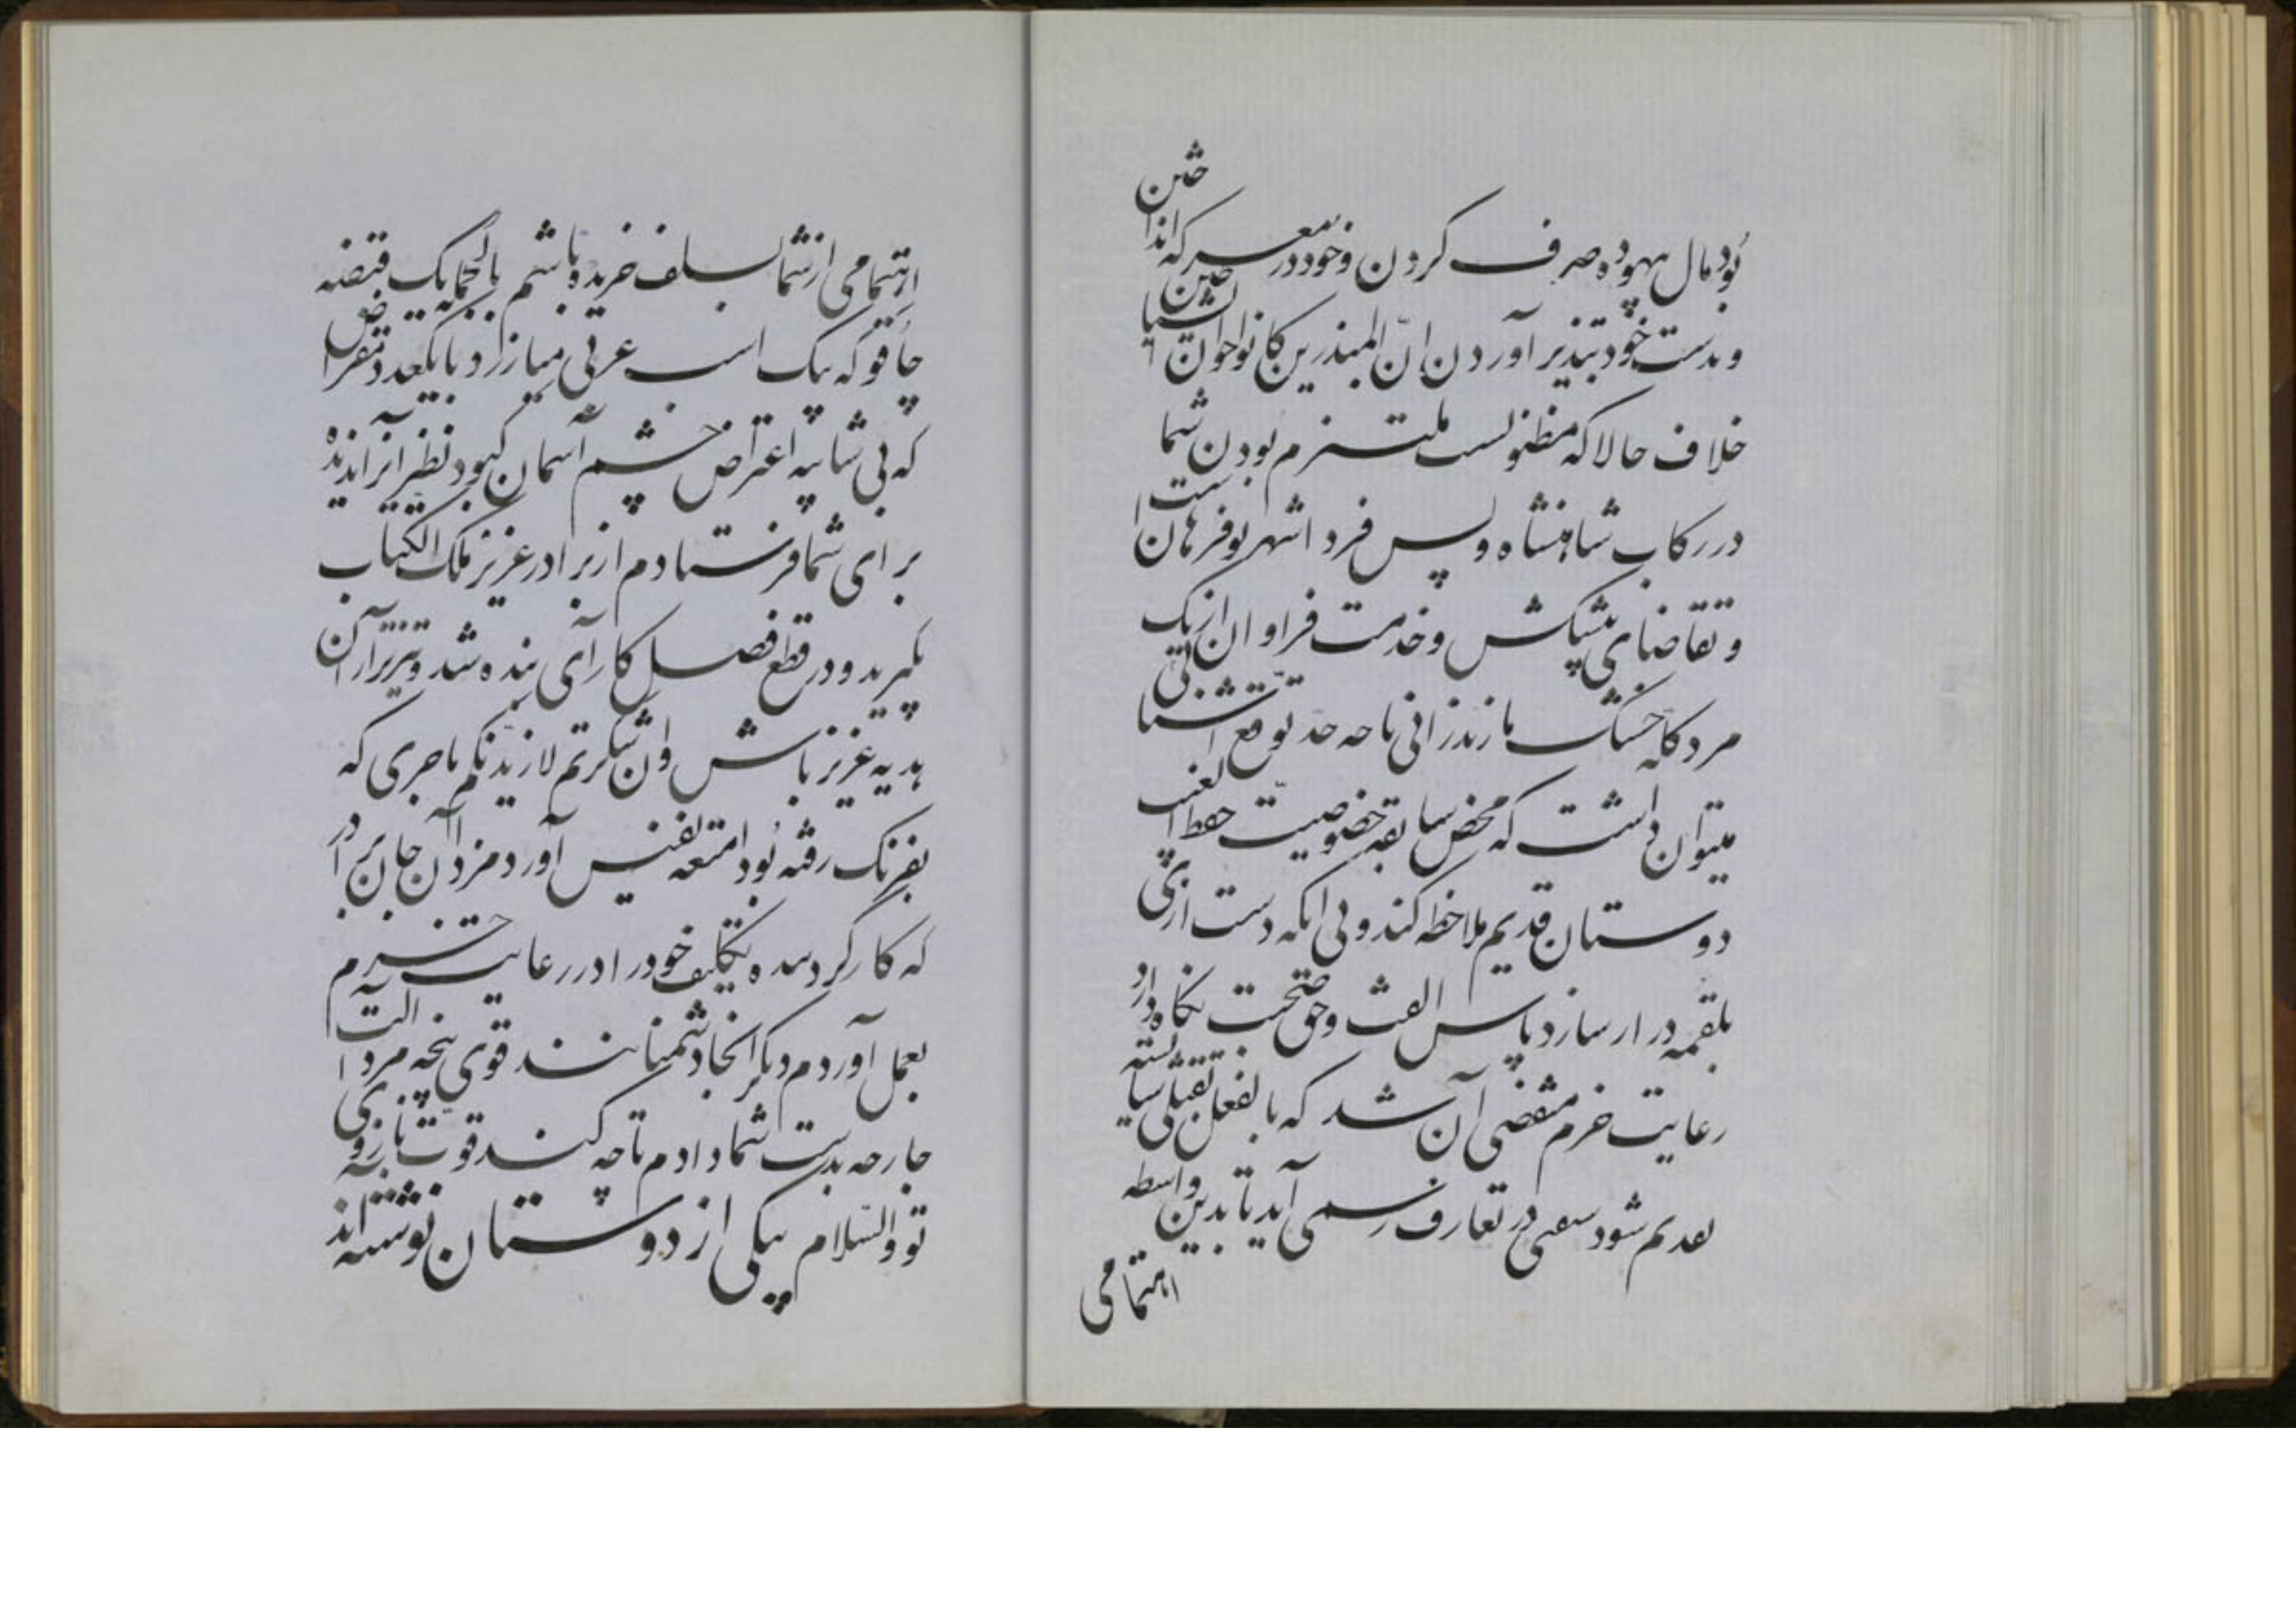 بود مال بیهوده صرف کردن و خود در معرکه انداختن
و بدست خود تبذیر آوردن ان المبذرین کانوا اخوان الشیاطین
خلاف حالا که مظنونست ملتزم بودن شما
در رکاب شاهنشاه و پس فردا شهر پر فرمان است
و تقاضای پیشکش و خدمت فراوان از یک
مرد کله خشک مازندرانی تا چه حد توقع
میتوان داشت که محض سابقه خصوصیت حفظ الغیب
دوستان قدیم ملاحظه کند و بی آنکه دست از پی
بلقمه دراز سازد پاس الفت و حق صحبت نگاه دارد
رعایت حزم مقتضی آن شد که بالفعل ثقیلی شایسته
تقدیم شود سعی در تعارف رسمی آید تا بدین واسطه
اهتمامی
اهتمامی از شما بسلف خریده باشم بالجمله یک قبضه
چاقو که بیک اسب عربی میارزد با یکعدد مقراض
که بی شایبه اعتراض چشم آسمان کبود نظیر آنرا ندیده
برای شما فرستادم از برادر عزیز ملک الکتاب
بگیرید و در قطع و فصل کارآی بنده شد و تیزتر از آن
هدیه عزیز باش و ان شکرتم لازیدنکم تاجری که
بفرنگ رفته بود امتعه نفیس آورد مزد آن جان برادر
که کار کرد بنده تکلیف خود را در رعایت حزم
بعمل آوردم دیگر آنجا دشمنانند قوی پنجه مرد آلت
جارحه بدست شما دادم تا چه کند قوت بازوی
تو والسلام بیکی از دوستان نوشته‌اند